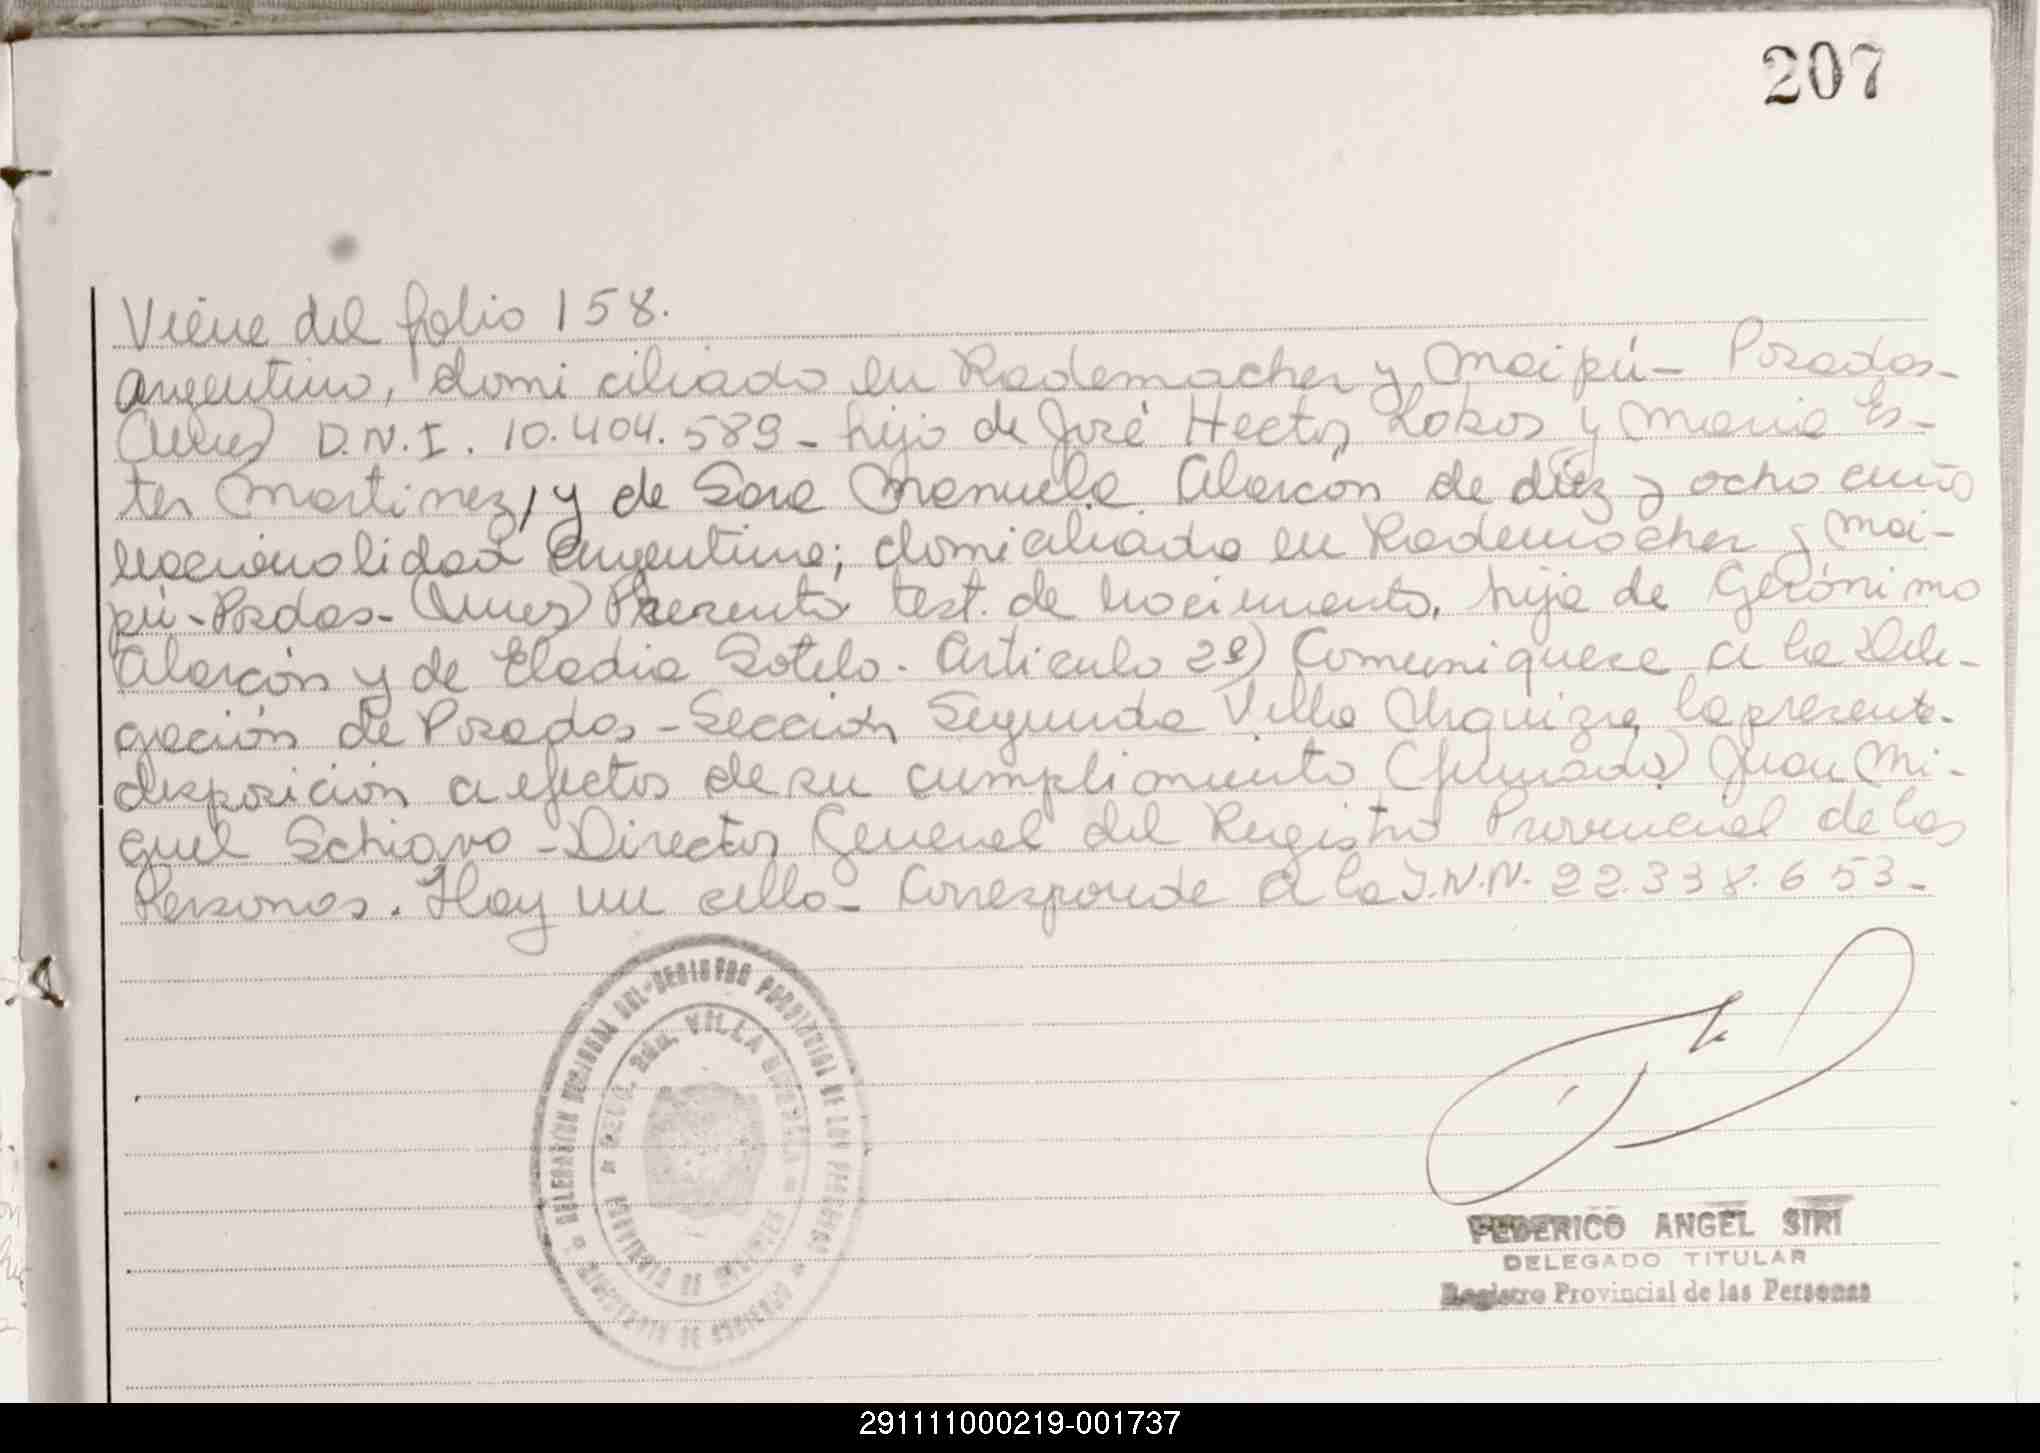 207
Viene del folio 158.
argentino, domiciliado en Rademacher y Maipú - Posadas -
(Mnes) D.N.I. 10.404.589 - hijo de José Hector Lobos y Maria Es-
ter Martinez, y de Sara Manuela Alarcón de diez y ocho años
nacionalidad argentina; domiciliada en Rademacher y Mai-
pú - Psdas - (Mnes) Presento test. de nacimiento, hija de Gerónimo
Alarcón y de Eladia Sotelo. Articulo 2º) Comuniquese a la Dele-
gación de Posadas - Sección Segunda Villa Urquiza, la presente
disposición a efectos de su cumplimiento (firmado) Juan Mi-
guel Schiavo - Director General del Registro Provincial de las
Personas. Hay un sello - Corresponde a la I.N.N. 22.338.653 -
DELEGACION REGIONAL DEL REGISTRO PROVINCIAL DE LAS PERSONAS
MINISTERIO DE GOBIERNO
SECC. 2da. VILLA URQUIZA
PROVINCIA DE MISIONES
FEDERICO ANGEL SIRI
DELEGADO TITULAR
Registro Provincial de las Personas
291111000219-001737